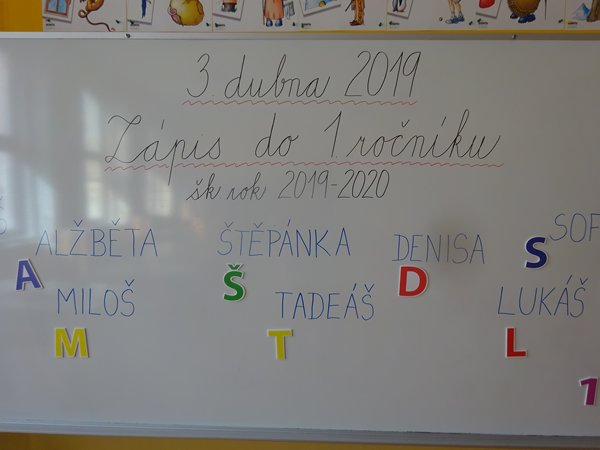 3. dubna 2019
Zápis do 1. ročníku
šk. rok 2019-2020
ALŽBĚTA ŠTĚPÁNKA DENISA SOF
A Š D S
MILOŠ TADEÁŠ LUKÁŠ
M T L
1